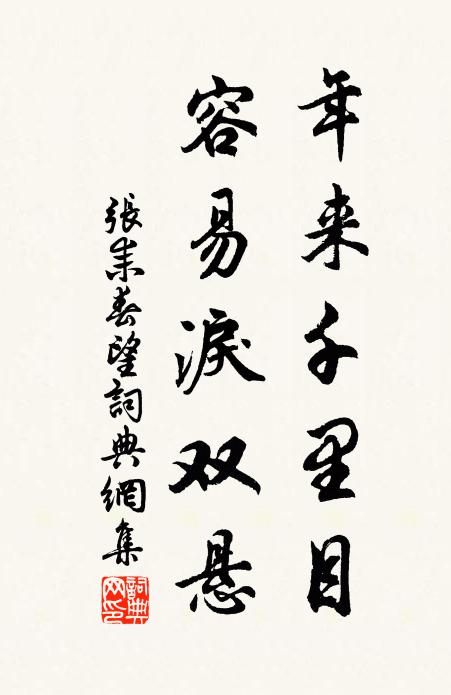 年来千里目
容易淚双悬
張耒春望詞典網集
詞典网印